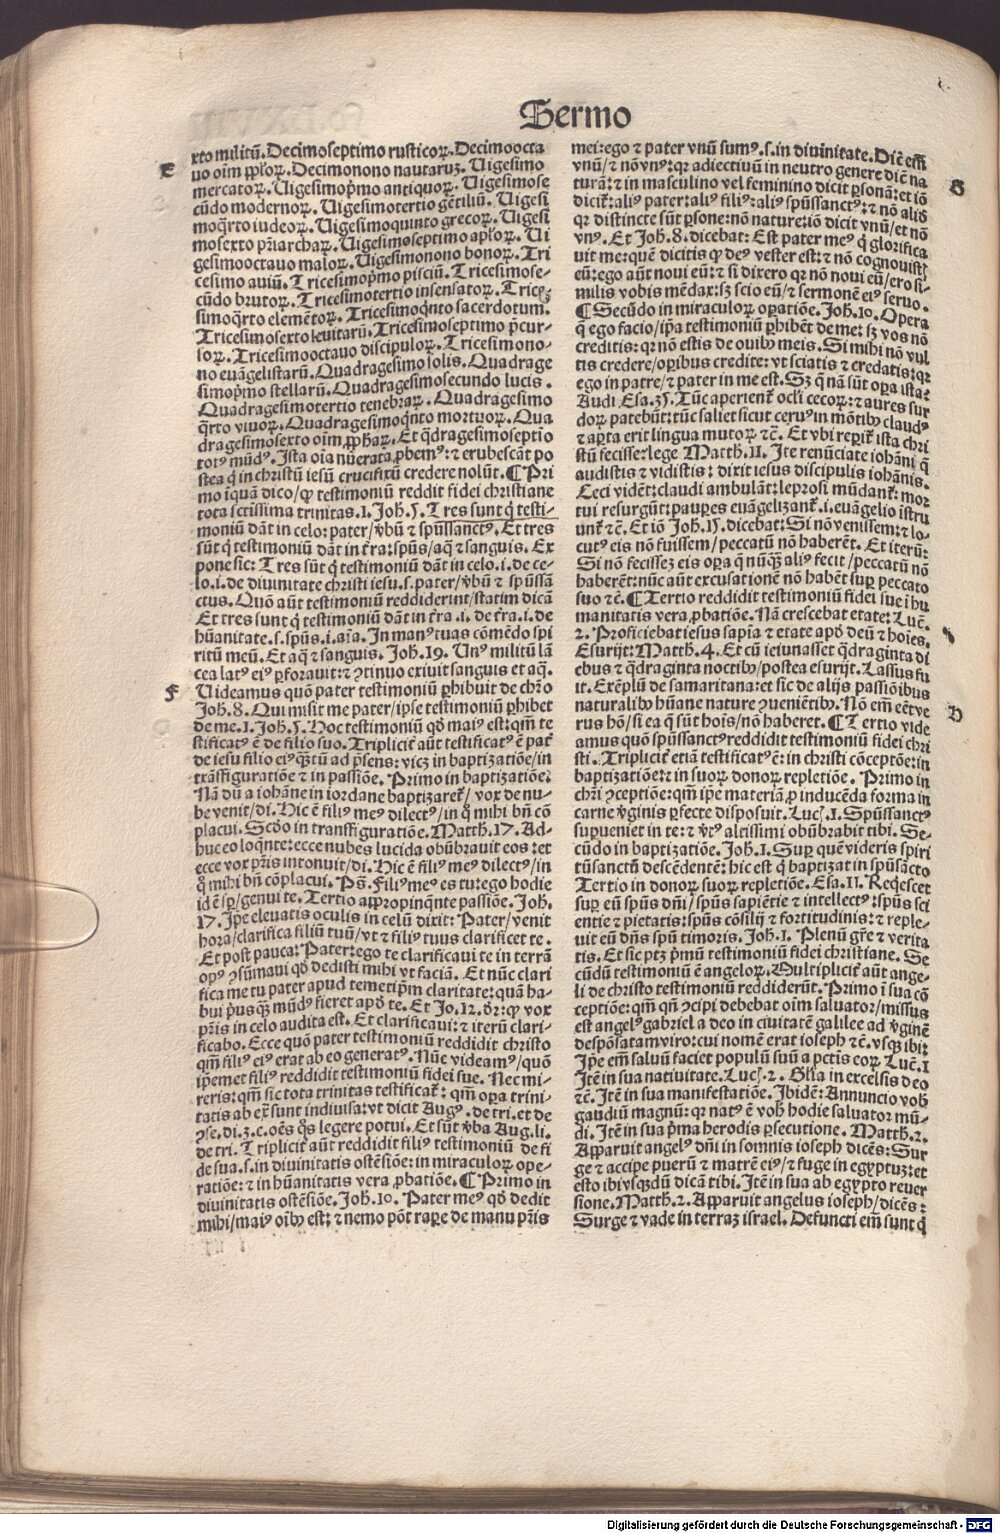 Sermo
xto militū. Decimoseptimo rusticoꝝ. Decimoocta
E
uo oīm ppl'oꝝ. Decimonono nautaruꝫ. Uigesimo
mercatoꝝ. Uigesimopͥmo antiquoꝝ. Uigesimose
cūdo modernoꝝ. Uigesimotertio gētiliū. Uigesi
moqͣrto iudeoꝝ. Uigesimoquinto grecoꝝ. Uigesi
mosexto pr̄iarchaꝝ. Uigesimoseptimo apl'oꝝ. Ui
gesimooctauo maloꝝ. Uigesimonono bonoꝝ. Tri
cesimo auiū. Tricesimopͥmo pisciū. Tricesimose-
cūdo brutoꝝ. Tricesimotertio insensatoꝝ. Trice
simoqͣrto elemētoꝝ. Tricesimoqͥnto sacerdotum.
Tricesimosexto leuitarū. Tricesimoseptimo p̄cur-
soꝝ. Tricesimooctauo discipuloꝝ. Tricesimono-
no euāgelistarū. Quadragesimo solis. Quadrage
simopͥmo stellarū. Quadragesimosecundo lucis.
Quadragesimotertio tenebraꝝ. Quadragesimo
qͣrto viuoꝝ. Quadragesimoqͥnto mortuoꝝ. Qua
dragesimosexto oīm ꝓphaꝝ. Et qͣdragesimoseptio
totiꝰ mūdꝰ. Ista oīa nūerata ꝓbemꝰ: ⁊ erubescāt po
stea qͥ in christū iesū crucifixū credere nolūt. ¶ Pri
mo iquā dico/ꝙ testimoniū reddit fidei christiane
tota sctissima trinitas. 1. Joh. 5. Tres sunt qͥ testi-
moniū dāt in celo: pater/v̓bū ⁊ spūssanctꝰ. Et tres
sūt qͥ testimoniū dāt in t̄ra: spūs/aqͣ ⁊ sanguis. Ex
pone sic: Tres sūt qͥ testimoniū dāt in celo. i. de ce-
lo. i. de diuinitate christi iesu. s. pater/v̓bū ⁊ spūssā
ctus. Quō aūt testimoniū reddiderint/statim dicā
Et tres sunt qͥ testimoniū dāt in t̄ra. i. de t̄ra. i. de
hūanitate. s. spūs. i. aīa. In manꝰ tuas cōmēdo spi
ritū meū. Et aqͣ ⁊ sanguis. Joh. 19. Unꝰ militū lā
cea latꝰ eiꝰ ꝑforauit: ⁊ ꝯtinuo exiuit sanguis et aqͣ.
F
Uideamus quō pater testimoniū ꝑhibuit de chr̄o
Joh. 8. Qui misit me pater/ip̄e testimoniū ꝑhibet
de me. 1. Joh. 5. Hoc testimoniū qd̓ maiꝰ est: qm̄ te
stificatꝰ ē de filio suo. Triplicit̄ aūt testificatꝰ ē pat̄
de iesu filio eiꝰqꝫtū ad p̄sens: vicꝫ in baptizatiōe/in
trāsfiguratiōe ⁊ in passiōe. Primo in baptizatiōe:
Nā dū a iohāne in iordane baptizaret̄/ vox de nu-
be venit/di. Hic ē filiꝰ meꝰ dilectꝰ/in qͦ mihi bn̄ cō
placui. Scd̓o in transfiguratiōe. Matth. 17. Ad-
huc eo loqͣnte: ecce nubes lucida obūbrauit eos: et
ecce vox pr̄is intonuit/di. Hic ē filiꝰ meꝰ dilectꝰ/in
qͦ mihi bn̄ cōplacui. Ps̄. Filiꝰ meꝰ es tu: ego hodie
id ē sꝑ/genui te. Tertio appropinqͣnte passiōe. Joh.
17. Ip̄e eleuatis oculis in celū dixit: Pater/venit
hora/clarifica filiū tuū/vt ⁊ filiꝰ tuus clarificet te.
Et post pauca: Pater: ego te clarificaui te in terrā
opꝰ ꝯsūmaui qd̓ dedisti mihi vt faciā. Et nūc clari
fica me tu pater apud temetip̄m claritate: quā ha-
bui p̓usqꝫ mūdꝰ fieret apd̓ te. Et Jo. 12. dr̄: ꝙ vox
pr̄is in celo audita est. Et clarificaui: ⁊ iterū clari-
ficabo. Ecce quō pater testimoniū reddidit christo
qm̄ filiꝰ eiꝰ erat ab eo generatꝰ. Nūc videamꝰ/quō
ip̄emet filiꝰ reddidit testimoniū fidei sue. Nec mi-
reris: qm̄ sic tota trinitas testificat̄: qm̄ oꝑa trini-
tatis ab ex̄ sunt indiuisa: vt dicit Augꝰ. de tri. et de
ꝯse. di. 3. c. oēs qͦs legere potui. Et sūt v̓ba Aug. li.
de tri. Triplicit̄ aūt reddidit filiꝰ testimoniū de fi
de sua. s. in diuinitatis ostēsiōe: in miraculoꝝ ope-
ratiōe: ⁊ in hūanitatis vera ꝓbatiōe. ¶ Primo in
diuinitatis ostēsiōe. Joh. 10. Pater meꝰ qd̓ dedit
mihi/maiꝰ oībꝰ est: ⁊ nemo pōt raꝑe de manu pr̄is
mei: ego ⁊ pater vnū sumꝰ. s. in diuinitate. Dic̄ em̄
G
vnū/ ⁊ nō vnꝰ: qꝛ adiectiuū in neutro genere dic̄ na
turā: ⁊ in masculino vel feminino dicit ꝑsonā: et iō
dicit̄: aliꝰ pater: aliꝰ filiꝰ: aliꝰ spūssanctꝰ: ⁊ nō aliō
qꝛ distincte sūt ꝑsone: nō nature: iō dicit vnū/et nō
vnꝰ. Et Joh. 8. dicebat: Est pater meꝰ qͥ glorifica
uit me: quē dicitis ꝙ deꝰ vester est: ⁊ nō cognouistꝭ
eū: ego aūt noui eū: ⁊ si dixero qꝛ nō noui eū/ero si-
milis vobis mēdax: sꝫ scio eū/ ⁊ sermonē eiꝰ seruo.
¶ Secūdo in miraculoꝝ oꝑatiōe. Joh. 10. Opera
qͣ ego facio/ip̄a testimoniū ꝑhibēt de me: sꝫ vos nō
creditis: qꝛ nō estis de ouibꝰ meis. Si mihi nō vul
tis credere/oꝑibus credite: vt sciatis ⁊ credatis: qꝛ
ego in patre/ ⁊ pater in me est. Sꝫ qͣ nā sūt oꝑa ista:
Audi Esa. 35. Tūc aperient̄ ocl'i cecoꝝ: ⁊ aures sur
doꝝ patebūt: tūc saliet sicut ceruꝰ in mōtibꝰ claudꝰ
⁊ aꝑta erit lingua mutoꝝ ⁊c̄. Et vbi reꝑit̄ ista chri
stū fecisse: lege Matth. 11. Ite renūciate iohāni qͣ
audistis ⁊ vidistis: dixit iesus discipulis iohānis.
Ceci vidēt: claudi ambulāt: leprosi mūdant̄: mor
tui resurgūt: pauꝑes euāgelizant̄. i. euāgelio istru
unt̄ ⁊c̄. Et iō Joh. 15. dicebat: Si nō venissem: ⁊ lo-
cutꝰ eis nō fuissem/peccatū nō haberēt. Et iterū:
Si nō fecissez eis oꝑa qͣ nūqꝫ aliꝰ fecit/peccatū nō
haberēt: nūc aūt excusationē nō habēt suꝑ peccato
suo ⁊c̄. ¶ Tertio reddidit testimoniū fidei sue ī hu
manitatis vera ꝓbatiōe. Nā crescebat etate: Luc̄.
2. Proficiebat iesus sapīa ⁊ etate apd̓ deū ⁊ hoīes.
Esurijt: Matth. 4. Et cū ieiunasset qͣdraginta di
ebus ⁊ qͣdraginta noctibꝰ/postea esurijt. Lassus fu
it. Exēplū de samaritana: et sic de alijs passiōibus
naturalibꝰ hūane nature ꝯueniētibꝰ. Nō em̄ eēt ve
H
rus hō/si ea qͣ sūt hoīs/nō haberet. ¶ Tertio vide
amus quō spūssanctꝰ reddidit testimoniū fidei chri
sti. Triplicit̄ etiā testificatꝰ ē: in christi cōceptōe: in
baptizatiōe: ⁊ in suoꝝ donoꝝ repletiōe. Primo in
chr̄i ꝯceptiōe: qm̄ ip̄e materiā ꝓ inducēda forma in
carne v̓ginis ꝑfecte disposuit. Luc̄. 1. Spūssanctꝰ
suꝑueniet in te: ⁊ v̓tꝰ altissimi obūbrabit tibi. Se-
cūdo in baptizatiōe. Joh. 1. Suꝑ quē videris spiri
tūsanctū descēdentē: hic est qͥ baptizat in spūsācto
Tertio in donoꝝ suoꝝ repletiōe. Esa. 11. Reqͥescet
suꝑ eū spūs dn̄i/ spūs sapiētie ⁊ intellectꝰ: spūs sci
entie ⁊ pietatis: spūs cōsilij ⁊ fortitudinis: ⁊ reple-
uit eū dn̄s spū timoris. Joh. 1. Plenū gr̄e ⁊ verita
tis. Et sic ptꝫ pͥmū testimoniū fidei christiane. Se
cūdū testimoniū ē angeloꝝ. Multiplicit̄ aūt ange-
li de christo testimoniū reddiderūt. Primo ī sua cō
ceptiōe: qm̄ qn̄ ꝯcipi debebat oīm saluator/missus
est angelꝰ gabriel a deo in ciuitatē galilee ad v̓ginē
despōsatam viro: cui nomē erat ioseph ⁊c̄. vsqꝫ ibi:
Ip̄e em̄ saluū faciet populū suū a pctīs eoꝝ. Luc̄. 1
Itē in sua natiuitate. Luc̄. 2. Gl'ia in excelsis deo
⁊c̄. Itē in sua manifestatiōe. Ibidē: Annuncio vob̓
gaudiū magnū: qꝛ natꝰ ē vob̓ hodie saluator mū-
di. Itē in sua pͥma herodis ꝑsecutione. Matth. 2.
Apparuit angelꝰ dn̄i in somnis ioseph dicēs: Sur
ge ⁊ accipe puerū ⁊ matrē eiꝰ/ ⁊ fuge in egyptuꝫ: et
esto ibi vsqꝫdū dicā tibi. Itē in sua ab egypto reuer
sione. Matth. 2. Apparuit angelus ioseph/dicēs:
Surge ⁊ vade in terraꝫ israel. Defuncti em̄ sunt qͥ
Digitalisierung gefördert durch die Deutsche Forschungsgemeinschaft - DFG